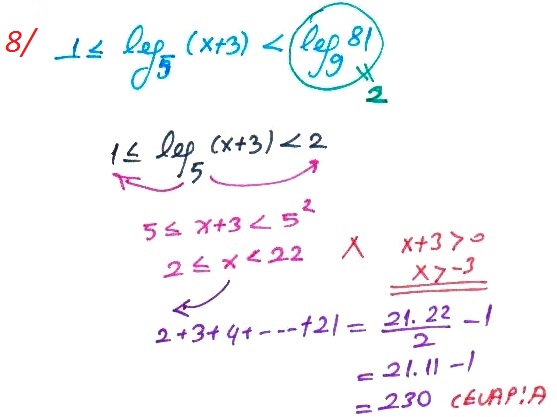 8/ 1 ≤ log₅ (x+3) < log₉ 81
2
1 ≤ log₅ (x+3) < 2
5 ≤ x+3 < 5²
2 ≤ x < 22
x+3 > 0
x > -3
2+3+4+----+21 = 21.22/2 - 1
= 21.11 - 1
= 230 CEVAP:A